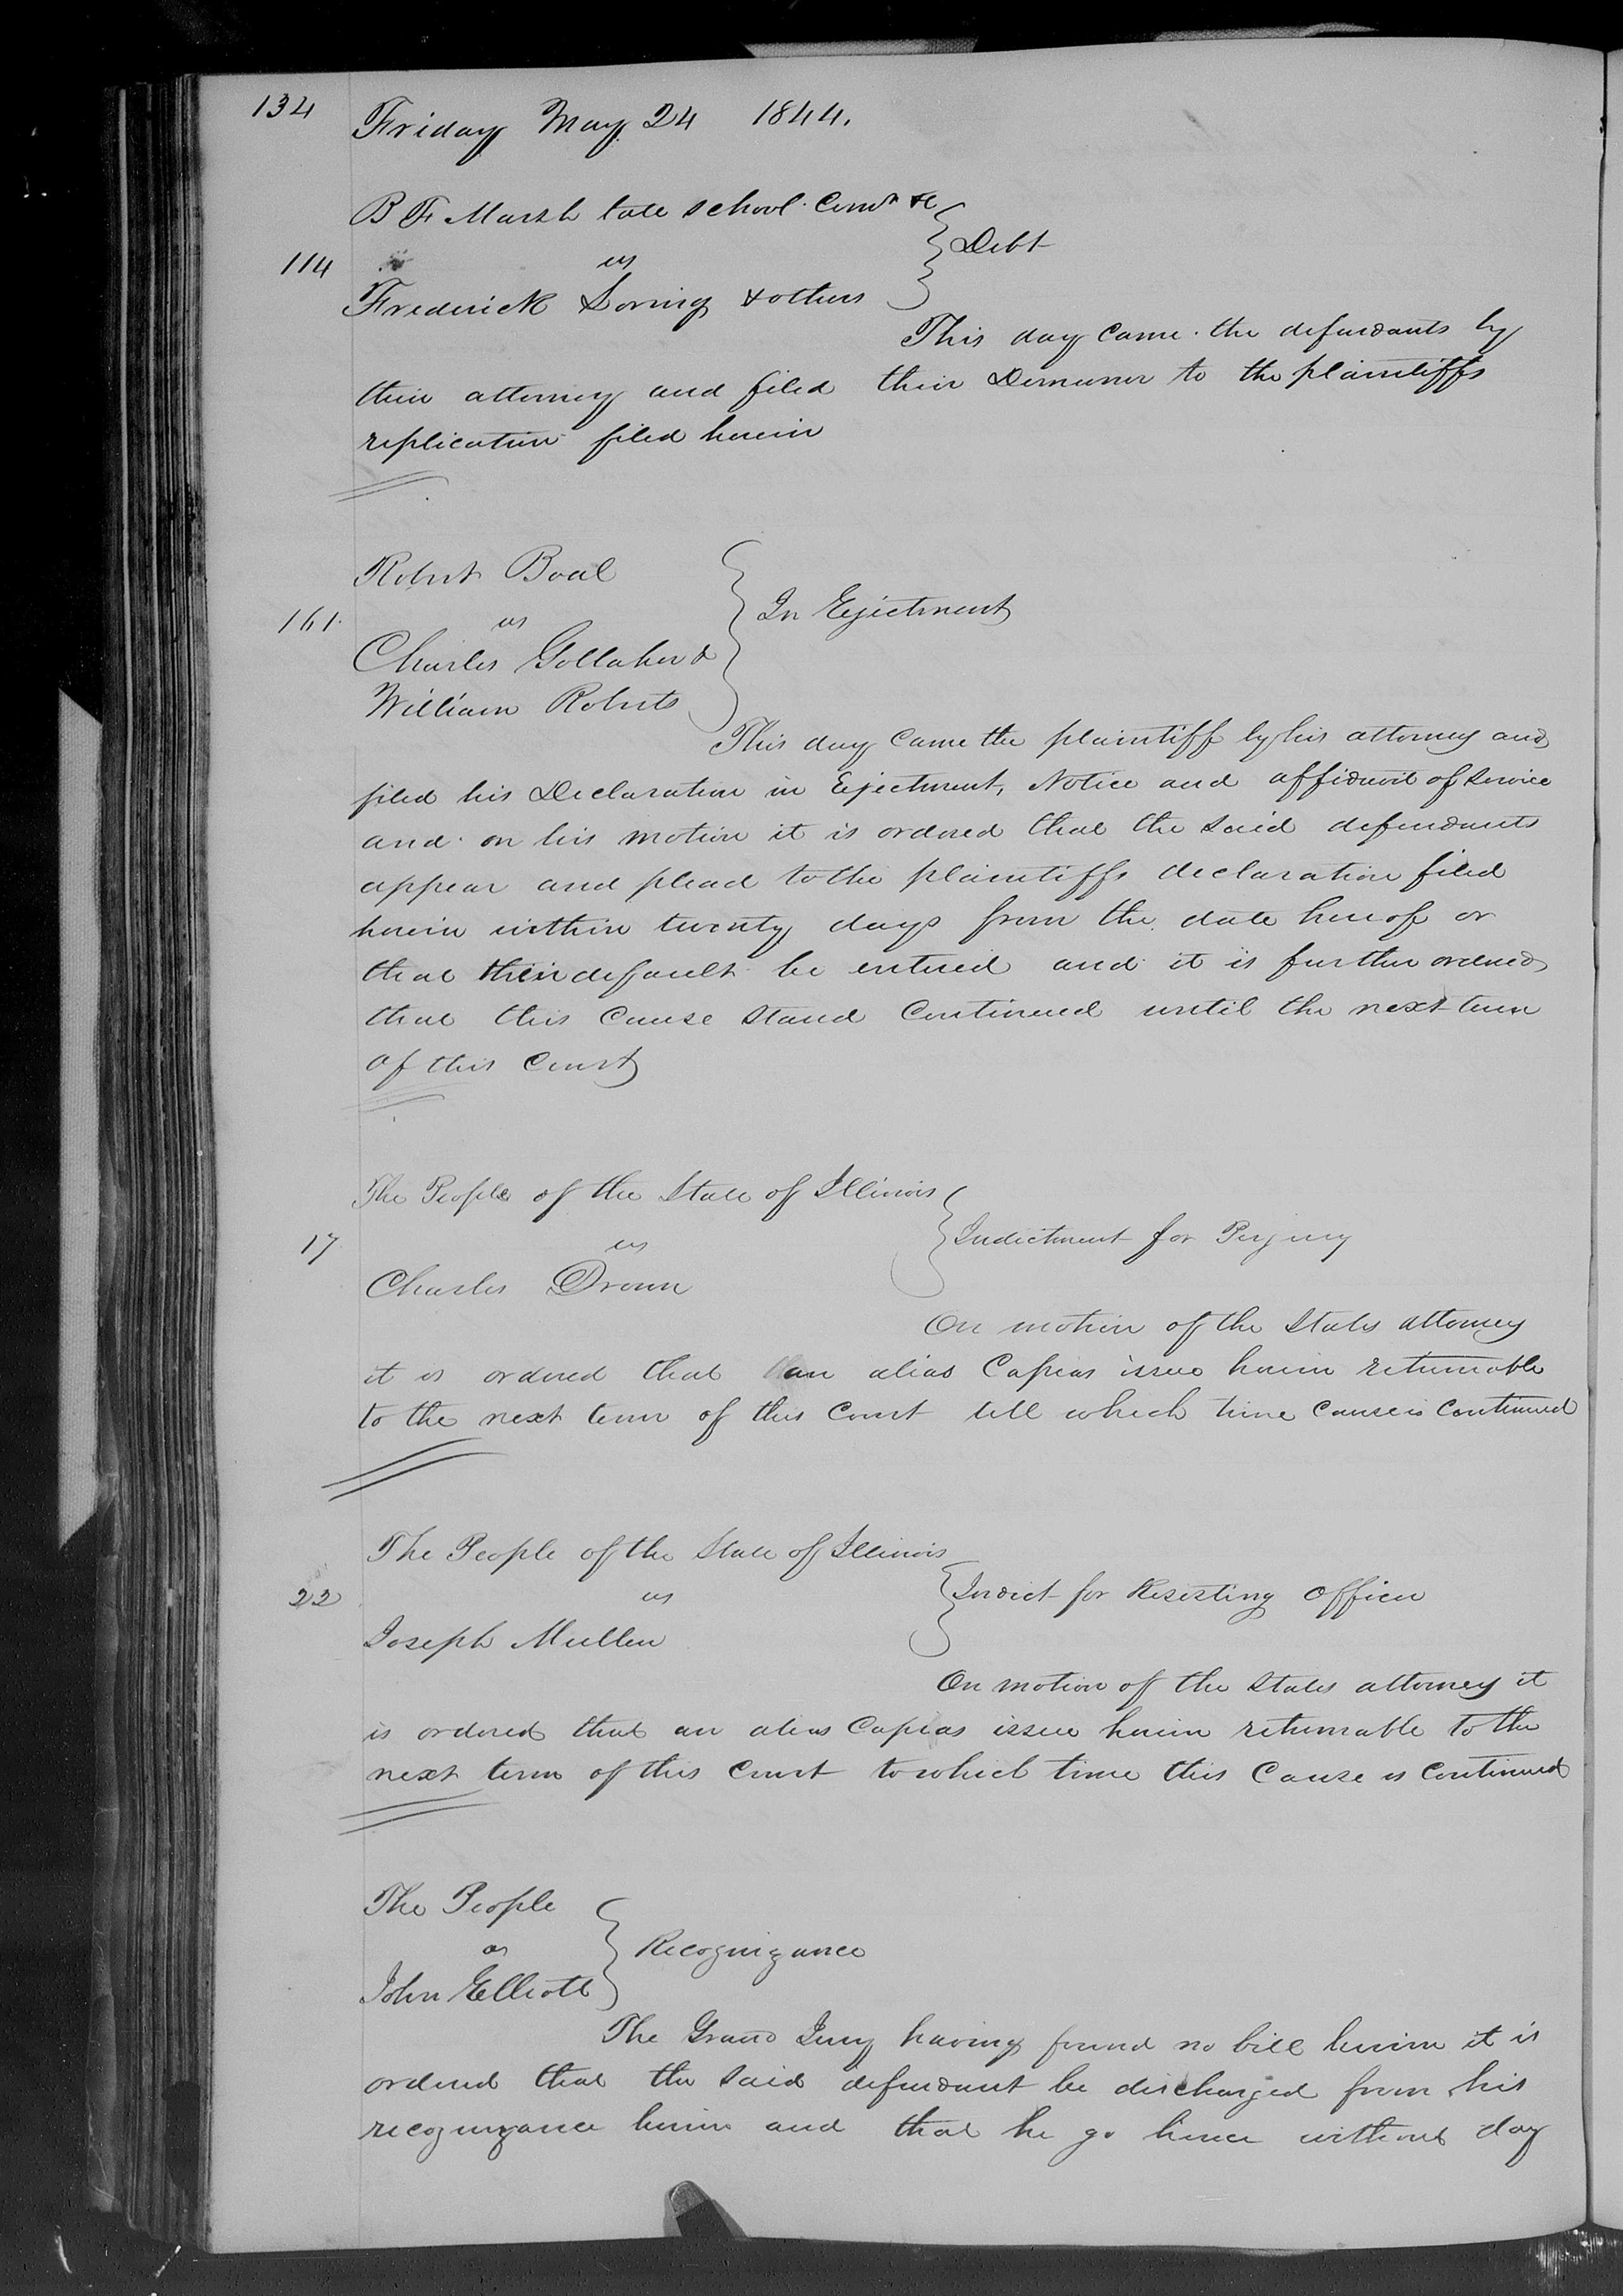 134
Friday May 24 1844.
B F Marsh late School Comr &c
Debt
114
vs
Frederick Loring & others
This day came the defendants by
their attorney and filed their Demurrer to the plaintiffs
replication filed herein
Robert Boal
In Ejectment
161.
vs
Charles Gollaher &
William Roberts
This day came the plaintiff by his attorney and
filed his Declaration in Ejectment, Notice and affidavit of Service
and on his motion it is ordered that the said defendants
appear and plead to the plaintiffs declaration filed
herein within twenty days from the date hereof or
that their default be entered and it is further ordered
that this Cause Stand Continued until the next term
of this Court
The People of the State of Illinois
Indictment for Perjury
17
vs
Charles Drown
On motion of the States attorney
it is ordered that an alias Capias issue herein returnable
to the next term of this Court till which time Cause is Continued
The People of the State of Illinois
Indict for Resisting Officer
22
vs
Joseph Mullen
On motion of the States attorney it
is ordered that an alias Capias issue herein returnable to the
next term of this Court to which time this Cause is Continued
The People
vs
Recognizance
John Elliott
The Grand Jury having found no bill herein it is
ordered that the said defendant be discharged from his
recognizance herein and that he go hence without day